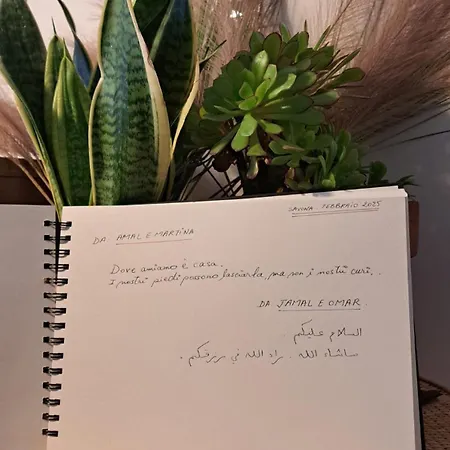 SAVONA - FEBBRAIO 2025
DA AMAL E MARTINA
Dove amiamo è casa.
I nostri piedi possono lasciarla, ma non i nostri cuori.
DA JAMAL E OMAR.
السلام عليكم.
ماشاء الله. زاد الله في